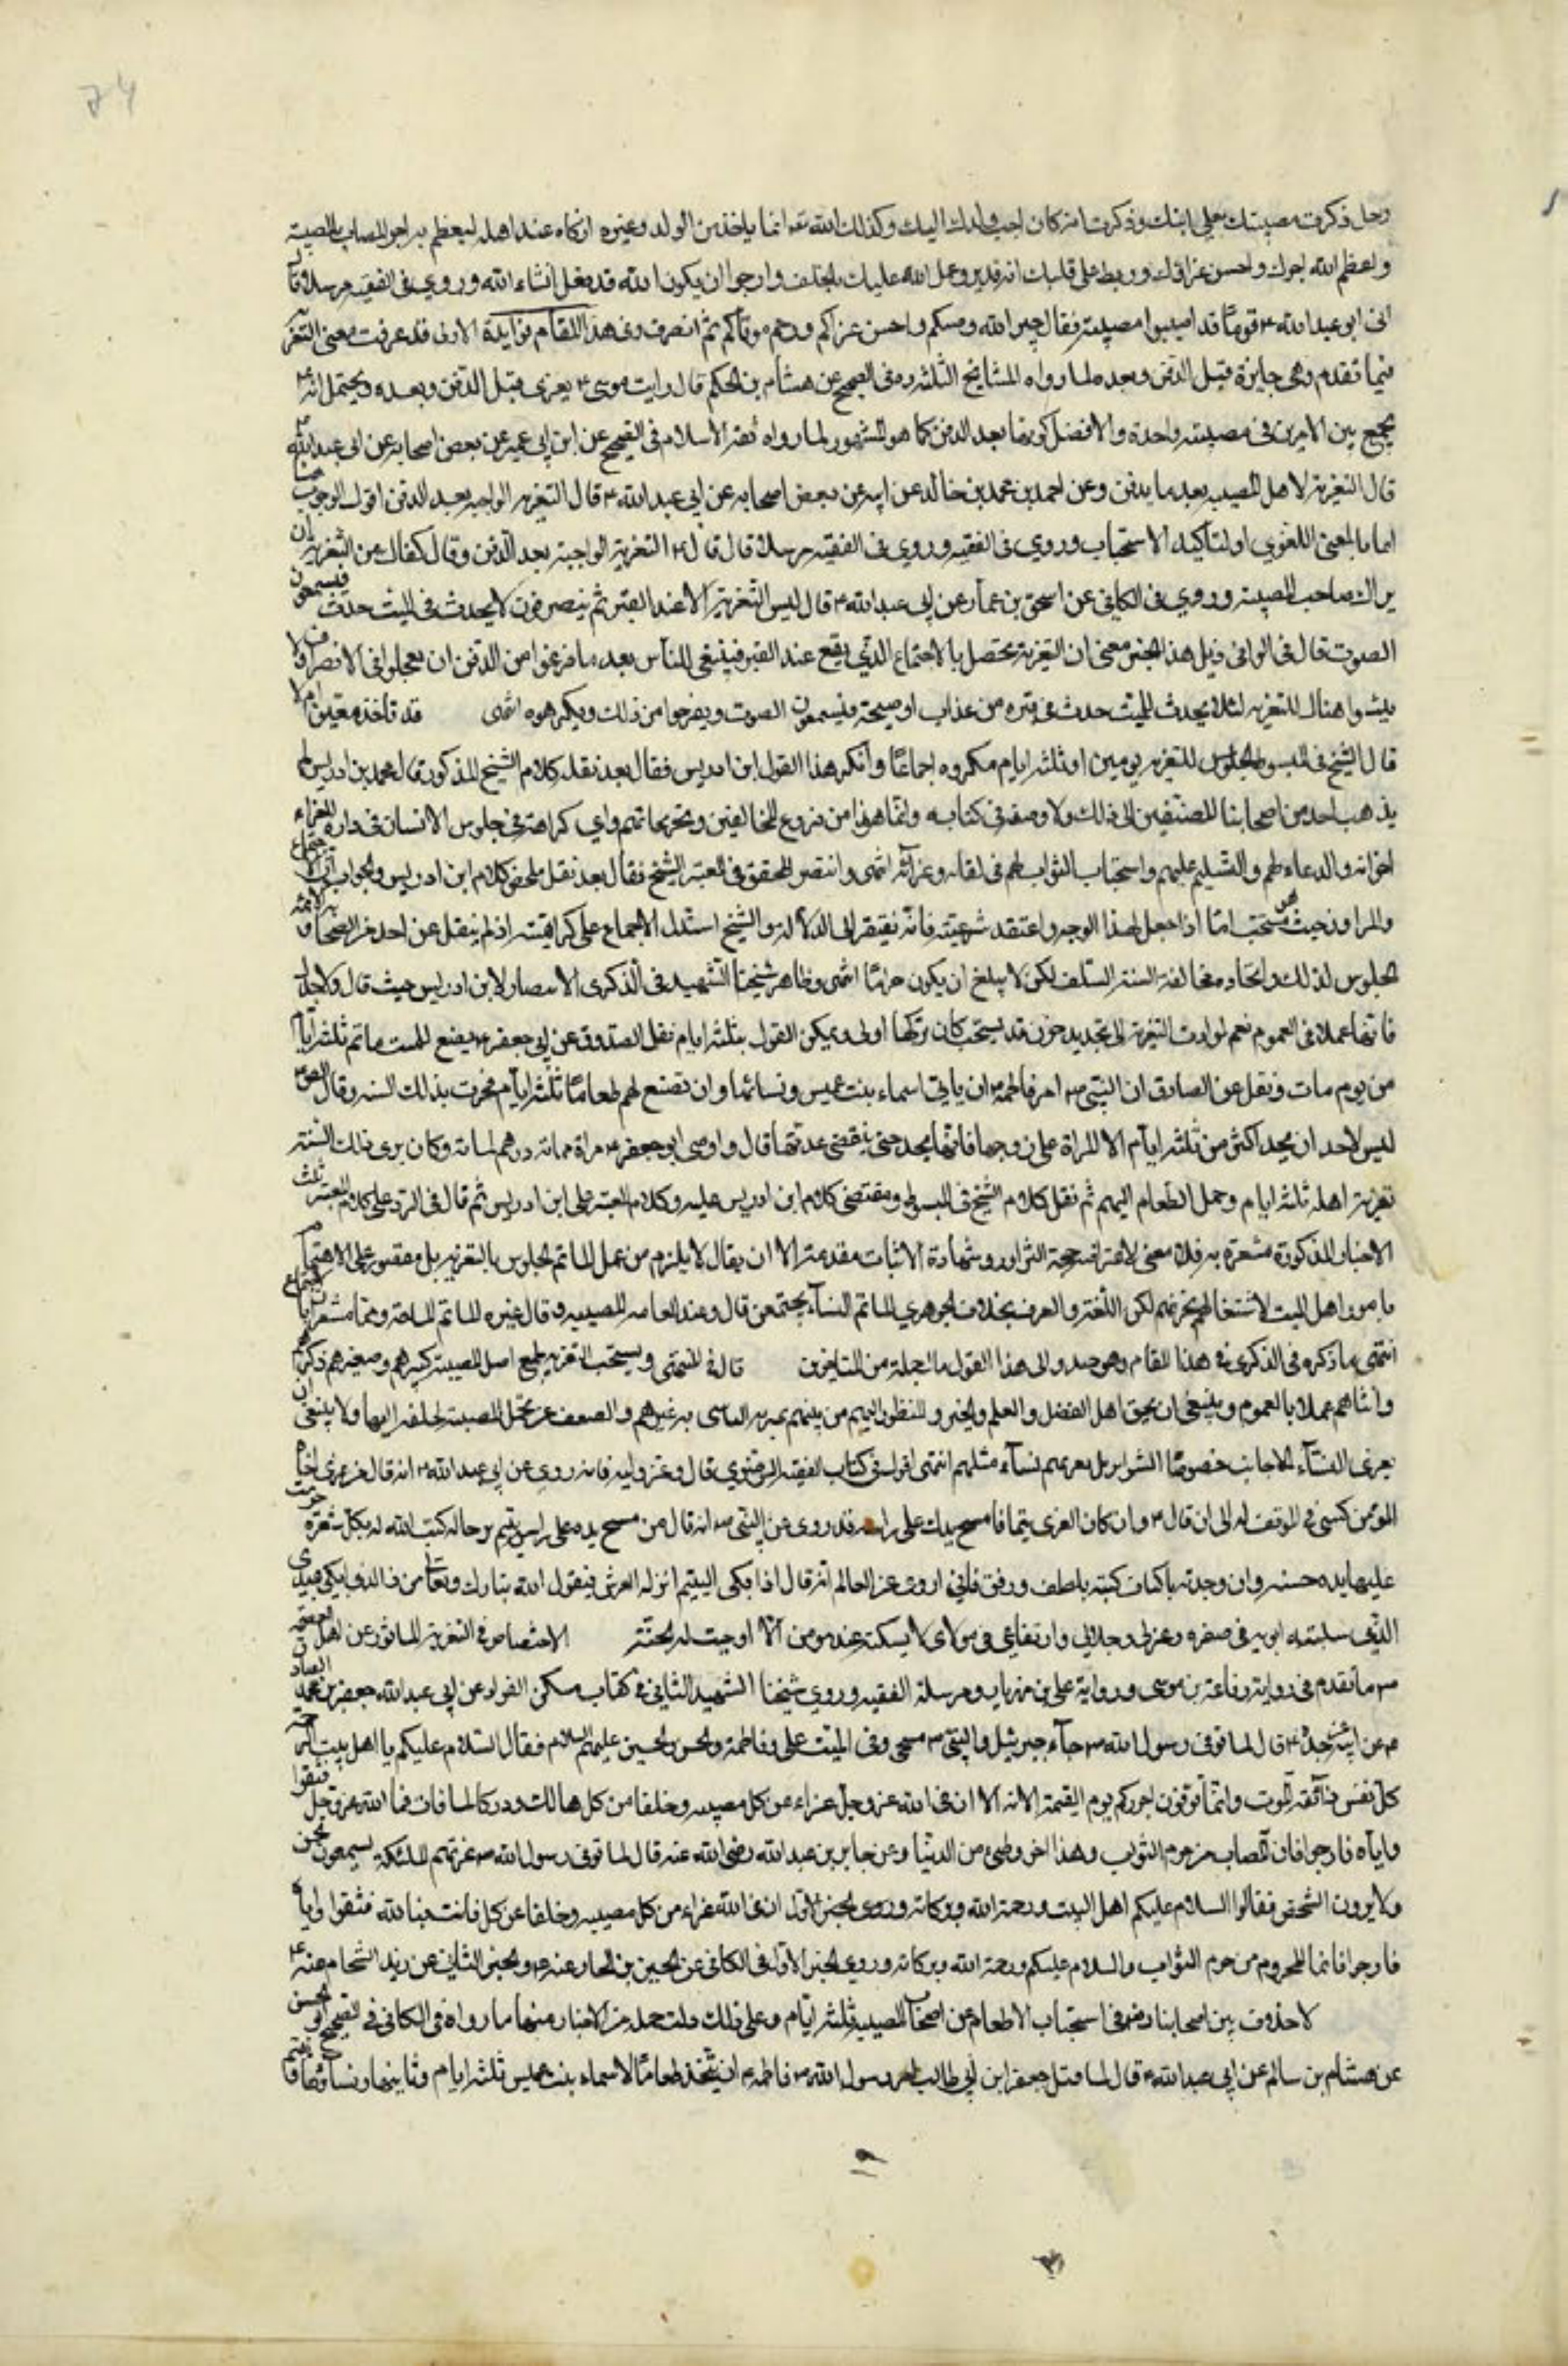 رجل ذكرت مصيبتك بعلي ابنك وذكرت انه كان احب ولدك اليك وكذلك الله تعه انما ياخذ من الولد وغيره ازكاه عند اهله ليعظم به اجر المصاب بالمصيبة
واعظم الله اجرك واحسن عزاك وربط على قلبك انه قدير وعجل الله عليك بالخلف وارجوا ان يكون الله قد فعل انشاء الله وروي في الفقيه مرسلا قال
اتى ابو عبد الله ع قوما قد اصيبوا بمصيبة فقال جبر الله وهنكم واحسن عزاكم ورحم موتاكم ثم انصرف وفي هذا المقام فوايد الاولى قد عرفت معنى التعز
فيما تقدم وهي جايزة قبل الدفن وبعده لما رواه المشايخ الثلثه ره في الصحيح عن هشام بن الحكم قال رايت موسى ع يعزى قبل الدفن وبعده ويحتمل انه ع
يجمع بين الامرين في مصيبة واحدة والافضل كونها بعد الدفن كما هو المشهور لما رواه ثقة الاسلام في الصحيح عن ابن ابي عمير عن بعض اصحابه عن ابي عبد الله ع
قال التعزية لاهل المصيبه بعد ما يدفن وعن احمد بن محمد بن خالد عن ابيه عن بعض اصحابه عن ابي عبد الله ع قال التعزيه الواجبه بعد الدفن اقول الوجوب هنا
اما بالمعنى اللغوي او لتاكيد الاستحباب وروي في الفقيه وروي في الفقيه مرسلا قال قال ع التعزية الواجبة بعد الدفن وقال كفاك من التعزية ان
يراك صاحب المصيبة وروي في الكافي عن اسحق بن عمار عن ابي عبد الله ع قال ليس التعزية الا عند القبر ثم ينصرفون لا يحدث في الميت حدث فيسمعون
الصوت قال في الوافي ذيل هذا الخبر معنى ان التعزية تحصل بالاجتماع الذي يقع عند القبر فينبغي للناس بعد ما فرغوا من الدفن ان يعجلوا في الانصراف ولا
يلبثوا هناك للتعزيه لئلا يحدث للميت حدث في قبره من عذاب او صيحة فيسمعون الصوت ويفزعوا من ذلك ويكرهوه انتهى
قال الشيخ في المبسوط الجلوس للتعزيه يومين او ثلثه ايام مكروه اجماعا وانكر هذا القول ابن ادريس فقال بعد نقل كلام الشيخ المذكور قال محمد بن ادريس لم
يذهب احد من اصحابنا المصنفين الى ذلك ولا وضعه في كتابه وانما هو من فروع المخالفين وتخريجاتهم واي كراهة في جلوس الانسان في داره للقاء
اخوانه والدعاء لهم والتسليم عليهم واستجلاب الثواب لهم في لقائه وعزائه انتهى وانتصر المحقق في المعتبر للشيخ فقال بعد نقل ملخص كلام ابن ادريس والجواب ان الاجتماع
والتزاور من حيث هو مستحب اما اذا جعل لهذا الوجه واعتقد شرعيته فانه يفتقر الى الدلالة والشيخ استدل بالاجماع على كراهيته اذ لم ينقل عن احد من الصحابه والائمه
الجلوس لذلك فاتخاذه مخالفة لسنة السلف لكن لا يبلغ ان يكون حراما انتهى وظاهر شيخنا الشهيد في الذكرى الانتصار لابن ادريس حيث قال ولا حد
فانها عملا في العموم نعم لو ادت التعزية الى تجديد حزن قد نسي كان تركها اولى ويمكن القول بثلثه ايام لنقل الصدوق عن ابي جعفر ع يصنع للميت ماتم ثلثة ايام
من يوم مات ونقل عن الصادق ان النبي ص امر فاطمة ع ان ياتي اسماء بنت عميس ونسائها وان تصنع لهم طعاما ثلثة ايام فجرت بذلك السنه وقال الص ع
ليس لاحد ان يحد اكثر من ثلثه ايام الا المراة على زوجها فانها تحد حتى تنقضي عدتها قال واوصى ابو جعفر ع بثمانمائه درهم لماتمه وكان يرى ذلك السنه
تعزية اهله ثلثه ايام وحمل الطعام اليهم ثم نقل كلام الشيخ في المبسوط ومقتضى كلام ابن ادريس عليه وكلام المعتبر على ابن ادريس ثم قال في الرد على كلام المعتبر
الاخبار المذكورة مشعرة به فلا معنى لاعتراضه حجة التزاور وشهادة الاثبات مقدمة الا ان يقال لا يلزم من عمل الماتم الجلوس بالتعزيه بل مقصور على الاهتمام
بامور اهل الميت لاشتغالهم بحزنهم لكن اللغة والعرف بخلافه الجوهري الماتم النساء يجتمعن قال وعند العامه المصيبه وقال غيره الماتم المناحة وهما مشعران بالاجتماع
انتهى ما ذكره في الذكرى في هذا المقام وهو جيد والى هذا القول مال جملة من المتاخرين قال في المنتهى ويستحب التعزيه لجميع اهل المصيبة كبيرهم وصغيرهم ذكرهم
وانثاهم عملا بالعموم وينبغي ان يخص اهل الفضل والعلم والخير والمنظور اليهم من بينهم ليتاسى به غيرهم والضعيف عن تحمل المصيبة لحاجته اليها ولا ينبغي ان
يعزى النساء الاجانب خصوصا الشواب بل يعزيهم نساء مثلهم انتهى اقول في كتاب الفقه الرضوي قال وعز وليه فانه روي عن ابي عبد الله ع انه قال من عزى اخاه
المؤمن كسي في الموقف حلة الى ان قال ع وان كان المعزى يتيما فامسح يدك على راسه فقد روي عن النبي ص انه قال من مسح يده على راس يتيم ترحما له كتب الله له بكل شعرة مرت
عليها يده حسنة وان وجدته باكيا فسكته بلطف ورفق فاني اروي عن العالم انه قال اذا بكى اليتيم اهتز له العرش فيقول الله تبارك وتعالى من ذا الذي ابكى عبدي
الذي سلبته ابويه في صغره وعزتي وجلالي وارتفاعي في مكاني لا يسكته عبد مومن الا اوجبت له الجنة
ما تقدم في رواية رفاعة بن موسى ورواية علي بن مهزيار ومرسلة الفقيه وروي شيخنا الشهيد الثاني في كتاب مسكن الفواد عن ابي عبد الله جعفر بن محمد الصادق
ع عن ابيه عن جده ع قال لما توفي رسول الله ص جاء جبرئيل والنبي ص مسجى وفي البيت علي وفاطمة والحسن والحسين عليهم السلام فقال السلام عليكم يا اهل بيت الرحمة
كل نفس ذائقة الموت وانما توفون اجوركم يوم القيمة الايه الا ان في الله عز وجل عزاء من كل مصيبه وخلفا من كل هالك ودركا لما فات فبالله عز وجل فثقوا
واياه فارجوا فان المصاب من حرم الثواب وهذا اخر وطئي من الدنيا وعن جابر بن عبد الله رضي الله عنه قال لما توفي رسول الله ص عزتهم الملئكة يسمعون الحس
ولا يرون الشخص فقالوا السلام عليكم اهل البيت ورحمة الله وبركاته ان في الله عزاء من كل مصيبه وخلفا من كل فائت فبالله فثقوا واياه
فارجوا فانما المحروم من حرم الثواب والسلام عليكم ورحمة الله وبركاته وروي الخبر الاول في الكافي عن الحسين بن المختار عنه ع والخبر الثاني عن زيد الشحام عنه ع
لا خلاف بين اصحابنا رضه في استحباب الاطعام عن اصحاب المصيبه ثلثه ايام وعلى ذلك دلت جمله من الاخبار منها ما رواه في الكافي في الصحيح او الحسن
عن هشام بن سالم عن ابي عبد الله ع قال لما قتل جعفر ابن ابي طالب امر رسول الله ص فاطمه ع ان تتخذ طعاما لاسماء بنت عميس ثلثه ايام وتاتيها ونساءها